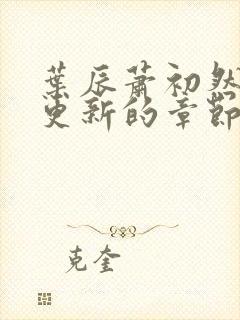 葉辰蕭初然
更新的章節
克奎